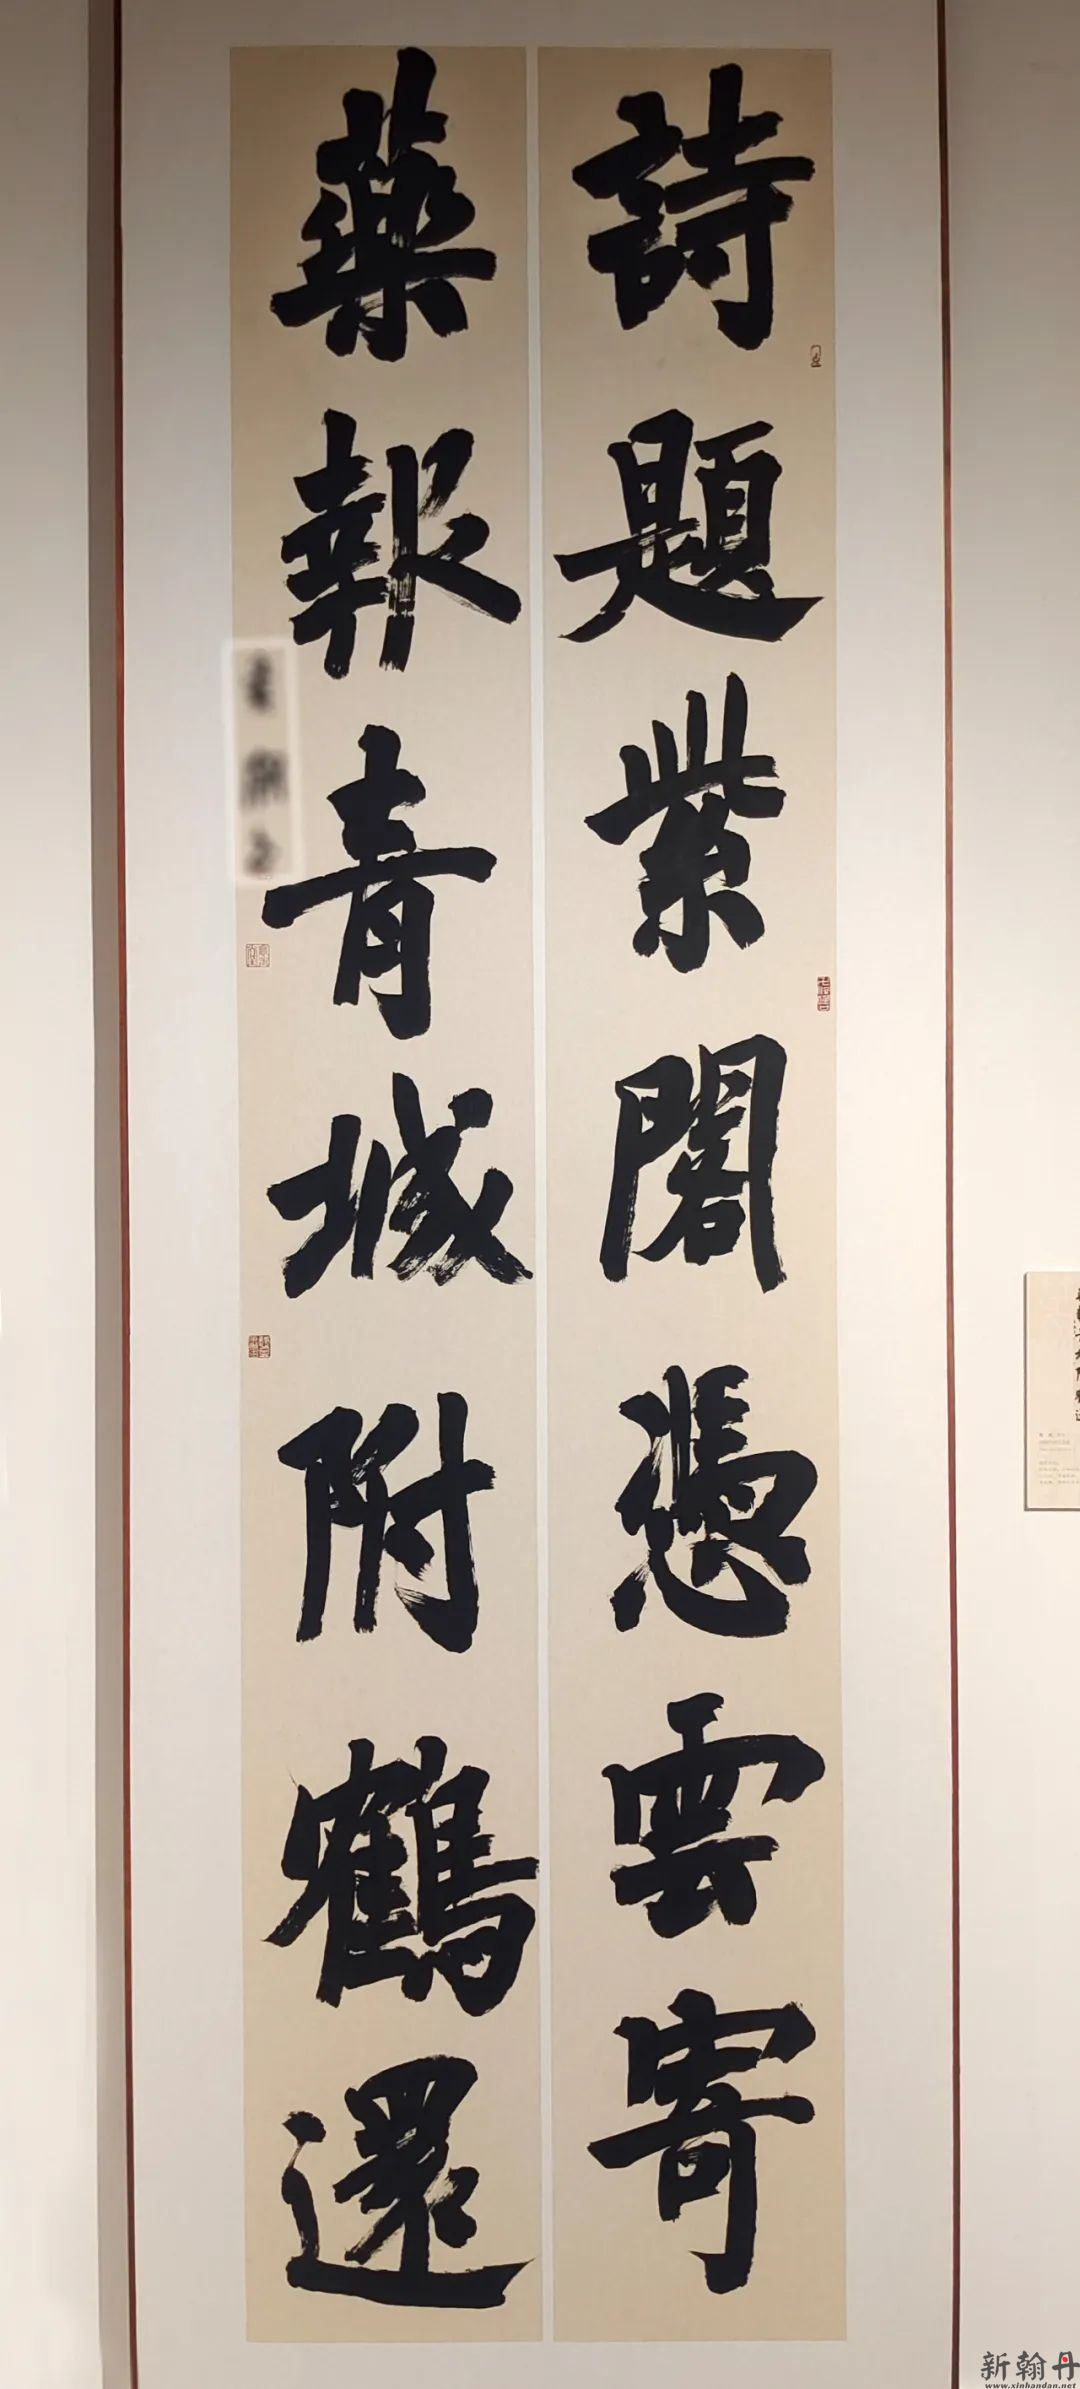 詩題紫閣憑雲寄
藥報青城附鶴還
新翰丹
www.xinhandan.net